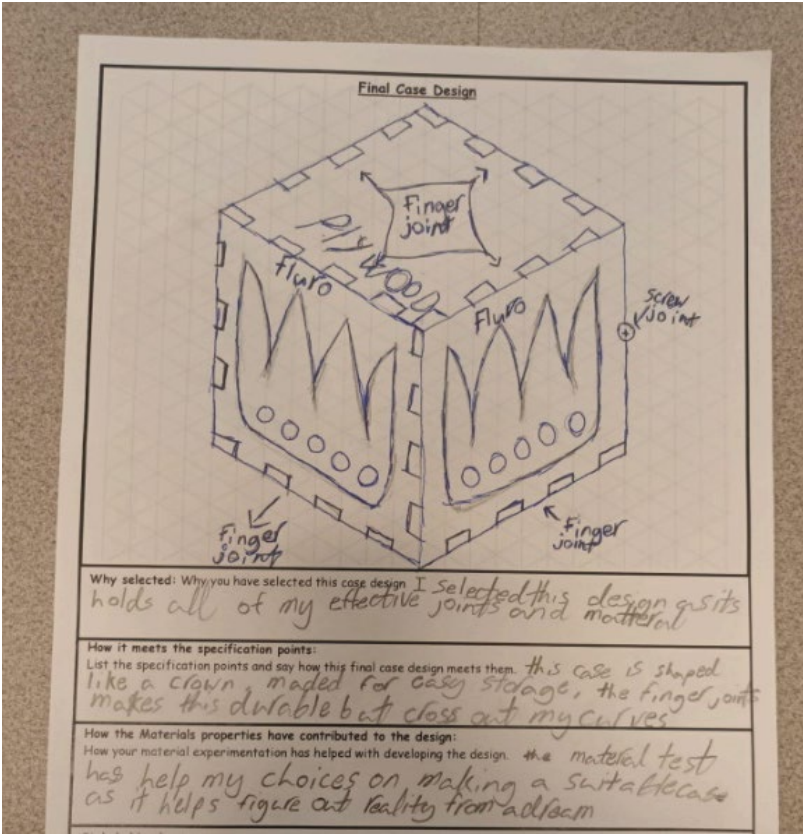 Final Case Design
Finger
joint
Plywood
Fluro
Fluro
screw
joint
Finger
joint
Finger
joint
Why selected: Why you have selected this case design I selected this design as its
holds all of my effective joints and matteral
How it meets the specification points:
List the specification points and say how this final case design meets them. this case is shaped
like a crown, maded for easy storage, the finger joints
makes this durable but cross out my curves
How the Materials properties have contributed to the design:
How your material experimentation has helped with developing the design. the material test
has help my choices on making a suitable case
as it helps figure out reality from a dream